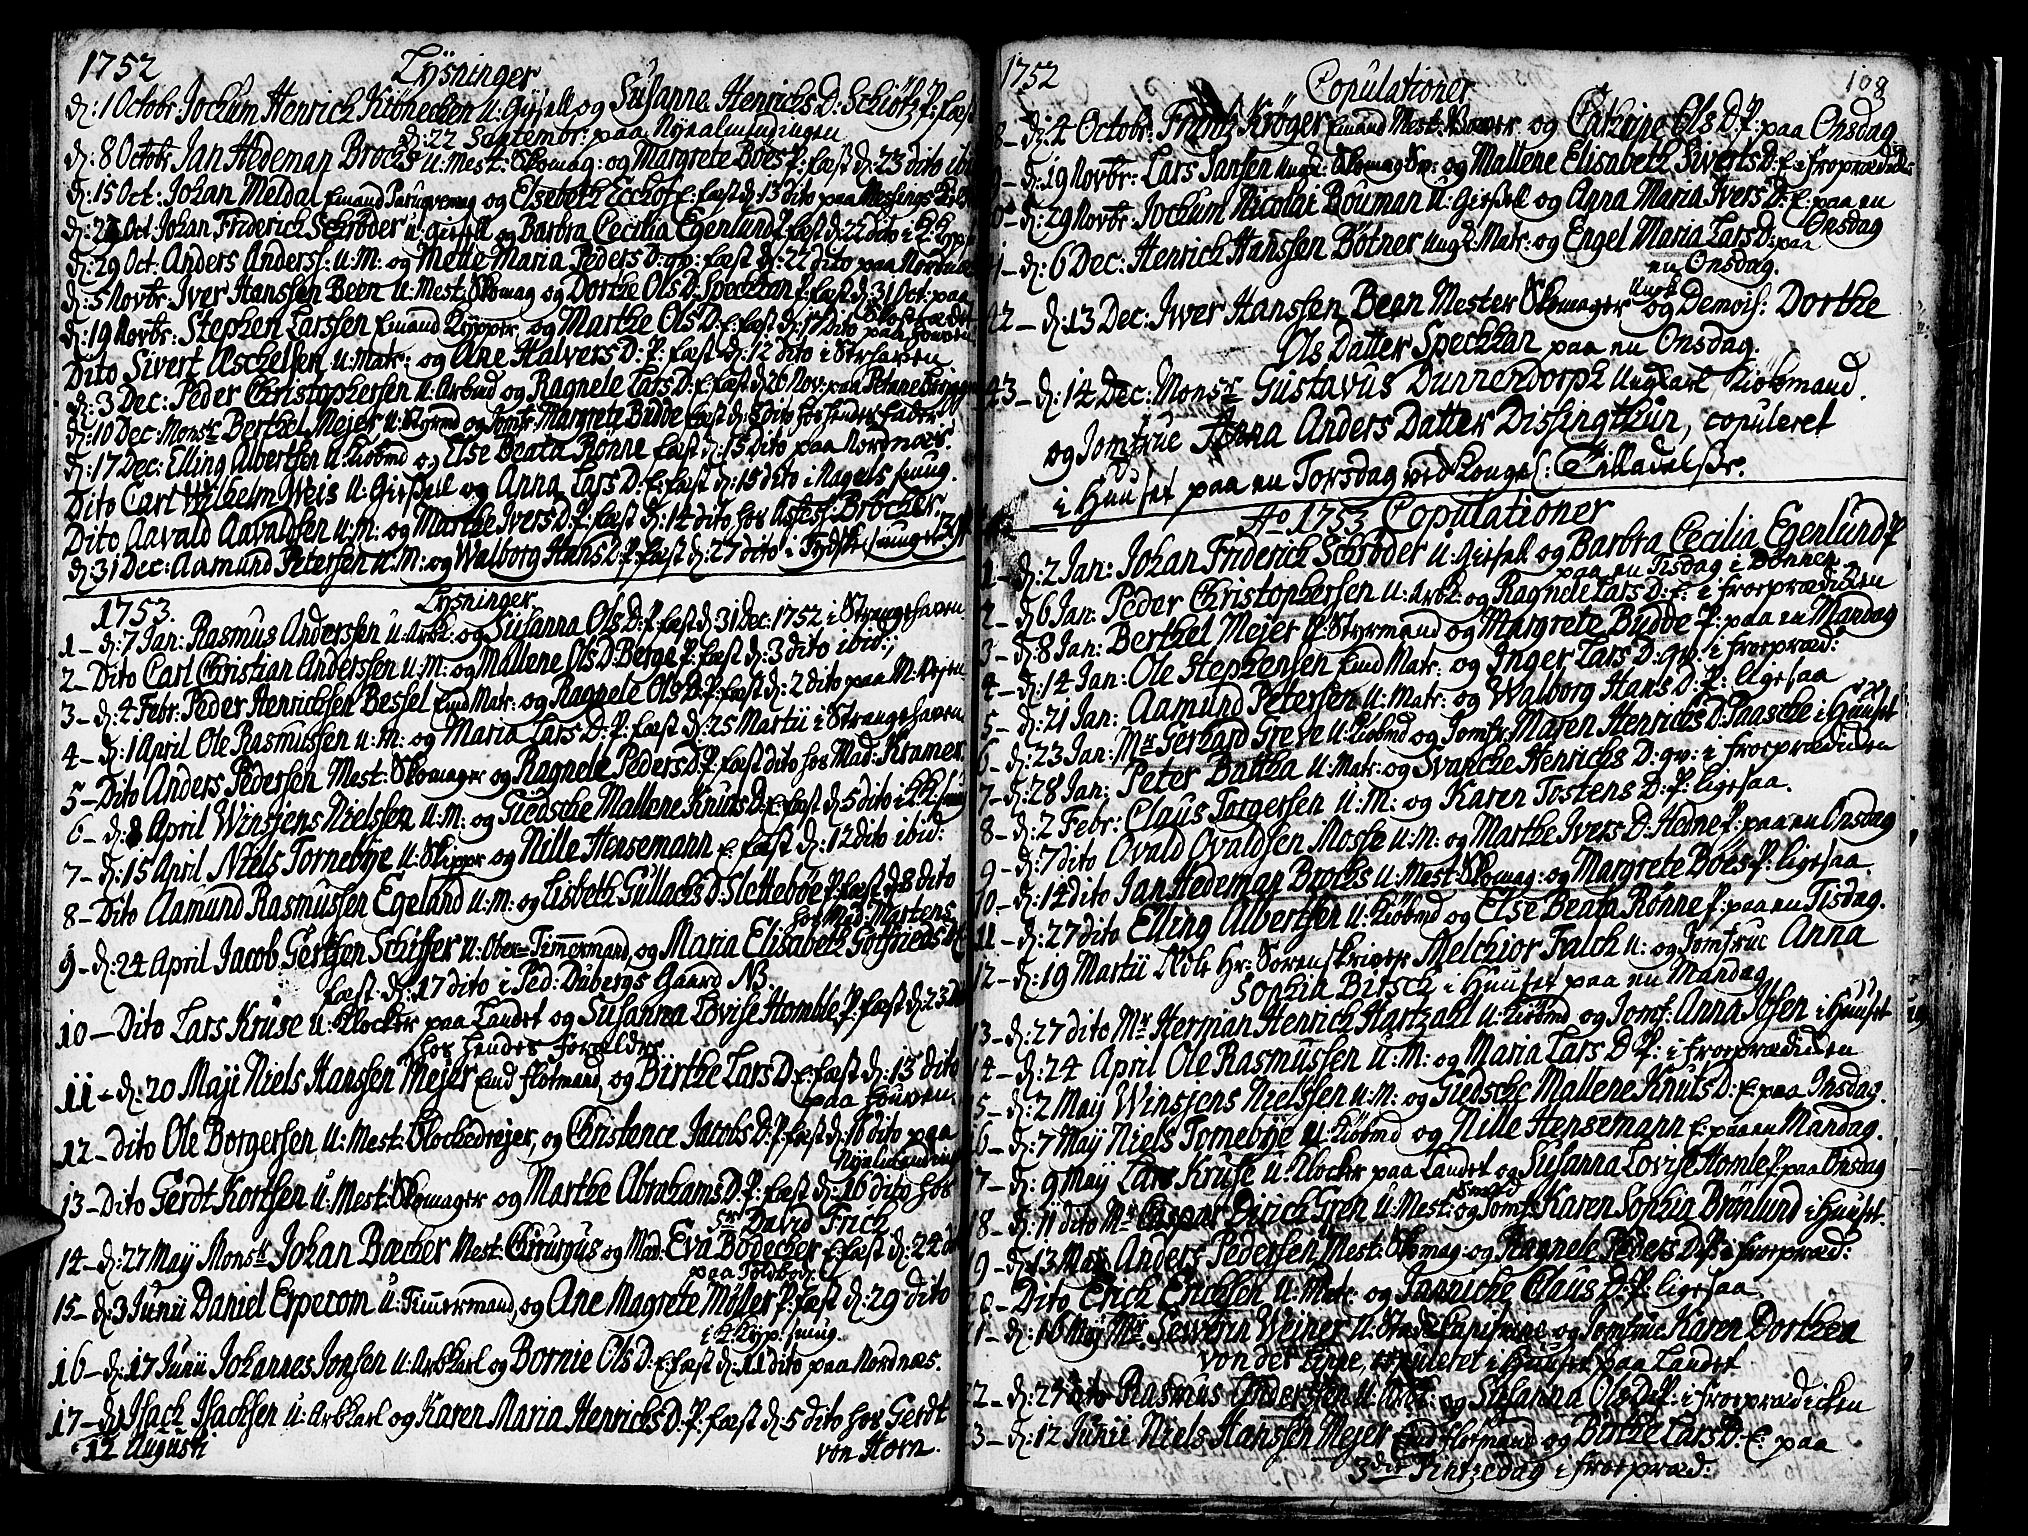 1752 Lysninger
d: 1 Octobr Jochum Henrich Krönecken u: Gijsell og Susanna Henrichs D: Schiøtz P: fæst
d: 22 Septembr: paa Nyealmendingen
d: 8 Octobr Jan Hedeman Brochs u: Mest: Skomag: og Margrete Böes P: fæst d: 23 dito ibid
d: 15 Oct: Johan Meldal Enmand Parugvemag og Elsebeth Eckhof E: fæst d: 13 dito paa
d: Oct Johan Friderich Schröder u: Gissell og Barbra Cecilia Egenlund P: fæst d: 22 dito i
d: 29 Oct: Anders Anderss: u: M: og Mette Maria Peders D: gv: fæst d: 22 dito paa Nordnæs
d: 5 Novbr: Iver Hanssen Been u: Mest: Skomag og Dorthe Ols D: Speckhan P: fæst d: 31 Oct: paa
d: 19 Novbr: Stephen Larssen Enmand og Marthe Ols D: E: fæst d: 17 dito paa
Dito Sivert Aschelsen u: Matr: og Ane Halvers D: P: fæst d: 12 dito i
d: 3 Dec: Peder Christophersen u: Arbmd og Ragnele Lars D: E: fæst d: 26 Nov: paa
d: 10 Dec Monsr Berthel Mejer u: Styrmd og Jomfr: Margrete Budde fæst d: 8 dito hos hendes fader
d: 17 Dec: Elling Albertsen u: Kiöbmd og Else Beata Rönne fæst d: 15 dito paa Nordnæs.
Dito Carl Wilhelm Weis u: Gissell og Anna Lars D: E: fæst d: 15 dito i Nagels smug.
Dito Aavald Aavaldsen u: M: og Marthe Ivers D: P: fæst d: 14 dito hos Assess: Bröcker.
d: 31 Dec: Aamund Petersen u: M: og Walborg Hans D: P: fæst d: 27 dito i
1753. Lysninger
1 – d: 7 Jan: Rasmus Anderssen u: Arbk: og Susanna Ols D: P: fæst d: 31 Dec: 1752 i Strangehaven.
2 – Dito Carl Christian Anderssen u: M: og Mallene Ols D: Berge P: fæst d: 3 dito ibid:
3 – d: 4 Febr: Peder Henrichsen Bessel Enmd Matr: og Ragnele Ols D: P: fæst d: 2 dito paa
4 – d: 1 April Ole Rasmussen u: M: og Maria Lars D: P: fæst d: 25 Martii i Strangehaven
5 – Dito Anders Pedersen Mest: Skomager og Ragnele Peders D: P: fæst dito hos Mad: Kramer
6 – d: 8 April Winsjens Nielssen u: M: og Giedsche Mallene Knuts D: E: fæst d: 5 dito i
7 – d: 15 April Niels Tornebÿe u: Skippr og Nille Hensemann E: fæst d: 12 dito ibid:
8 – Dito Aamund Rasmussen Egeland u: M: og Lisbeth Gullachs D: Slettebøe P: fæst d: 8 dito
hos Mad: Martens
9 – d: 24 April Jacob Gertsen Schiffer u: Ober-Timmermand, og Maria Elisabeth Gotfrieds
fæst d: 17 dito i Ped: Dubergs Gaard N3.
10 – Dito Lars Kruse u: Klocker paa Landet og Susanna Lovise Homble P: fæst d: 23
hos hendes forældre
11 – d: 20 Maji Niels Hanssen Mejer Enmd flotmand, og Birthe Lars D: E: fæst d: 13 dito
paa
12 – dito Ole Borgersen u: Mest: Blockedrejer, og Christence Jacobs D: P: fæst d: 16 dito paa
Nyealmending
13 – Dito Gerdt Kortsen u: Mest: Skomager og Marthe Abrahams D: P: fæst d: 16 dito hos
Sr David Frich
14 – d: 27 May Monsr Johan Bæcker Mest: Chirurgus og Mad: Eva Bödecker E: fæst d: 24
paa Toldbod:
15 – d: 3 Junii Daniel Erpecom u: Timmermand, og Ane Magrete Möller P: fæst d: 29 dito
i smug.
16 – d: 17 Junii Johannes Jonsen u: Arbkarl og Bornie Ols D: E: fæst d: 11 dito paa Nordnæs.
17 – d: Isach Isachsen u: Arbkarl og Karen Maria Henrichs D: P: fæst d: 5 dito hos Gerdt
12 Augusti von Horn.
1752 Copulationer 108
d: 4 Octobr: Frantz Kröger Enmand Mest: og Cathrine Ols D: P: paa Onsdag
d: 19 Novbr: Lars Jansen ungk: Skomag Sv: og Mallene Elisabeth Siverts D: E: i froeprædick:
d: 29 Novbr: Jochum Nicolai Bouman u: Gissell og Anna Maria Ivers D: E: paa en
Onsdag
d: 6 Dec: Henrich Hanssen Bötner ungk: Matr: og Engel Maria Lars D: paa
en Onsdag.
42 – d: 13 Dec: Iwer Hanssen Been Mester Skomager ungk: og Demois: Dorthe
Ols Datter Speckhan paa en Onsdag.
43 – d: 14 Dec: Monsr Gustavus Dunnendorph Ungkarl Kiöbmand.
og Jomfrue Anna Anders Datter Dissingthun, copuleret
i Huuset paa en Torsdag ved Konges: Tilladelse.
Ao 1753 Copulationer
1 – d: 2 Jan: Johan Friderich Schröder u: Gissell og Barbra Cecilia Egenlund P
paa en Tisdag i Bönnen
2 – d: 6 Jan: Peder Christophersen u: Arbk: og Ragnele Lars D: E: i froeprædicken
3 – d: 8 Jan: Berthel Mejer u: Styrmand og Margrete Budde P: paa en Mandag
4 – d: 14 Jan: Ole Stephensen Enmd Matr: og Inger Lars D: gv: i froepræd:
5 – d: 21 Jan: Aamund Petersen u: Matr: og Walborg Hans D: P: ligesaa
6 – d: 23 Jan: Mr Gerhard Greve u: Kiöbmd og Jomfr: Maren Henrichs D: Paasche i Huuset
7 – d: 28 Jan: Peter Battha u: Matr: og Svancke Henrichs D: gv: i froeprædicken
8 – d: 2 Febr: Claus Torgersen u: M: og Karen Tostens D: P: ligesaa.
9 – d: 7 dito Ovald Ovaldsen Mosse u: M: og Marthe Ivers D: Hedne P: paa en Onsdag
10 – d: 14 dito Jan Hedeman Brochs u: Mest: Skomag: og Margrete Böes P: ligesaa
11 – d: 27 dito Elling Albertsen u: Kiöbmd og Else Beata Rönne P: paa en Tisdag.
12 – d: 19 Martii Ædle Hr: Sorenskriver Melchior Falch u: og Jomfrue Anna
Sophia Bitsch i Huuset paa en Mandag
13 – d: 27 dito Mr Herman Henrich Hartzahl u: Kiöbmd og Jomf: Anna Ibsen i Huuset
14 – d: 24 April Ole Rasmussen u: M: og Maria Lars D: P: i froeprædicken
15 – d: 2 May Winsjens Nielssen u: M: og Giedsche Mallene Knuts D: E: paa Onsdag.
16 – d: 7 May Niels Tornebÿe u: Kiöbmd og Nille Hensemann E: paa en Mandag.
17 – d: 9 May Lars Kruse u: Klocker paa Landet og Susanna Lovise Homle P: paa Onsdag
18 – d: 11 dito Mr Caspar Dirich Greh u: Mest: Smed og Jomf: Karen Sophia Brönlund i Huuset.
19 – d: 13 May Anders Pedersen Mest: Skomag: og Ragnele Peders D: P: i froepræd:
20 – Dito Erich Erichsen u: Matr: og Jannicke Claus D: P: ligesaa
21 – d: 16 May Mr Sewerin Weiner u: og Jomfrue Karen Dorthea
von der Lippe, copuleret i Huuset paa Landet
22 – d: 27 dito Rasmus Anderssen u: Arbk: og Susanna Ols D: P: i froeprædicken
23 – d: 12 Junii Niels Hanssen Mejer Enmd flotmand og Birthe Lars D: E: paa
3die Pintzedag i froepræd: